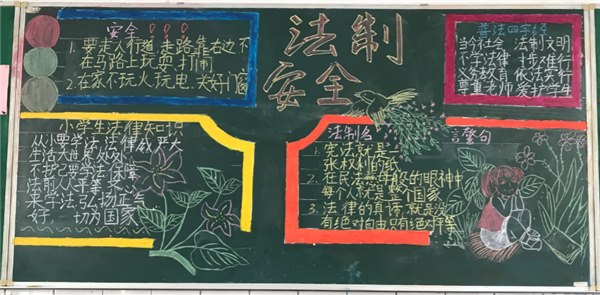 安全!!!
1.要走人行道,走路靠右边不
在马路上玩耍,打闹
2.在家不玩火玩电,关好门窗
法制
安全
普法四字经
当今社会 法制文明
不学法律
义务教育 依法实行
尊重老师 爱护学生
小学生法律知识
从小要学法,法律
生活
法律
来学法 弘扬正气
好, 一切为国家
法制名言警句
1.宪法就是一
张权利的纸
2.在民法慈母般的眼神中
每个人就是整个国家
3.法律的真谛,就是没
有绝对自由,只有绝对平等